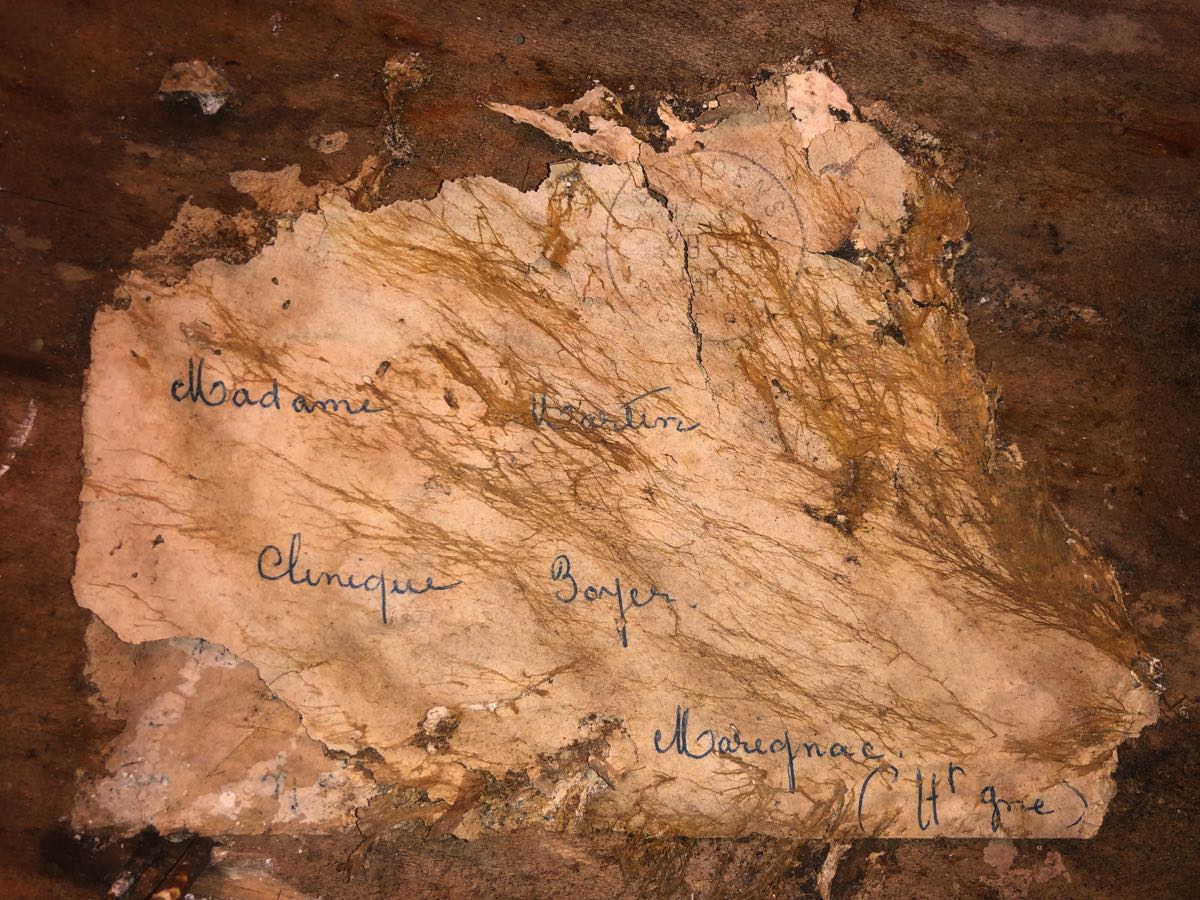 Madame Martin
Clinique Boyer.
Marignac.
(Ht gne)